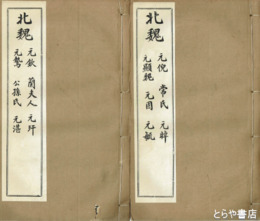 北魏
元倪 常氏 元晫
元顯魏 元固 元䫂
北魏
元欽 蘭夫人 元玕
元鷙 公孫氏 元湛
とらや書店